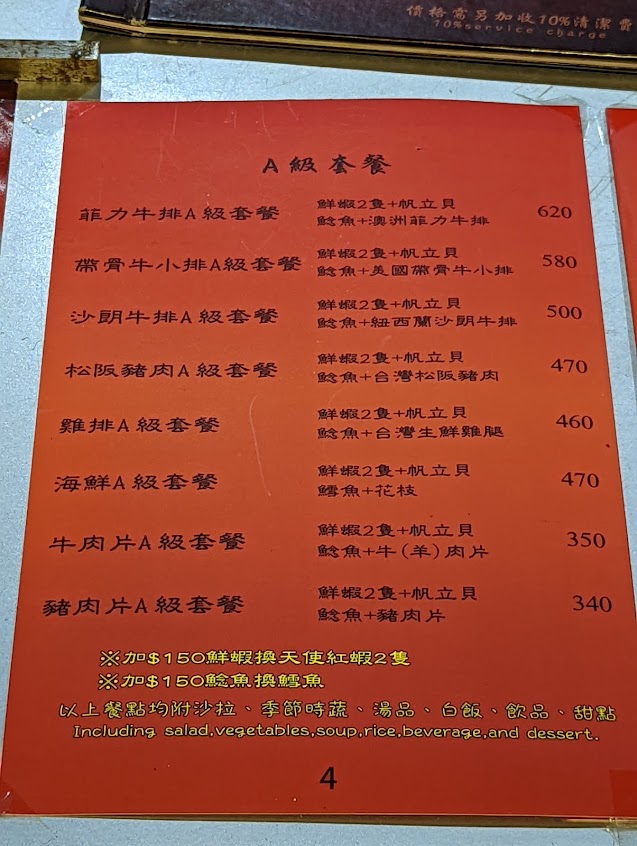 價格需另加收10%清潔費
10%service charge
A級套餐
菲力牛排A級套餐
鮮蝦2隻+帆立貝
鯰魚+澳洲菲力牛排
620
帶骨牛小排A級套餐
鮮蝦2隻+帆立貝
鯰魚+美國帶骨牛小排
580
沙朗牛排A級套餐
鮮蝦2隻+帆立貝
鯰魚+紐西蘭沙朗牛排
500
松阪豬肉A級套餐
鮮蝦2隻+帆立貝
鯰魚+台灣松阪豬肉
470
雞排A級套餐
鮮蝦2隻+帆立貝
鯰魚+台灣生鮮雞腿
460
海鮮A級套餐
鮮蝦2隻+帆立貝
鱈魚+花枝
470
牛肉片A級套餐
鮮蝦2隻+帆立貝
鯰魚+牛(羊)肉片
350
豬肉片A級套餐
鮮蝦2隻+帆立貝
鯰魚+豬肉片
340
※加$150鮮蝦換天使紅蝦2隻
※加$150鯰魚換鱈魚
以上餐點均附沙拉、季節時蔬、湯品、白飯、飲品、甜點
Including salad,vegetables,soup,rice,beverage,and dessert.
4